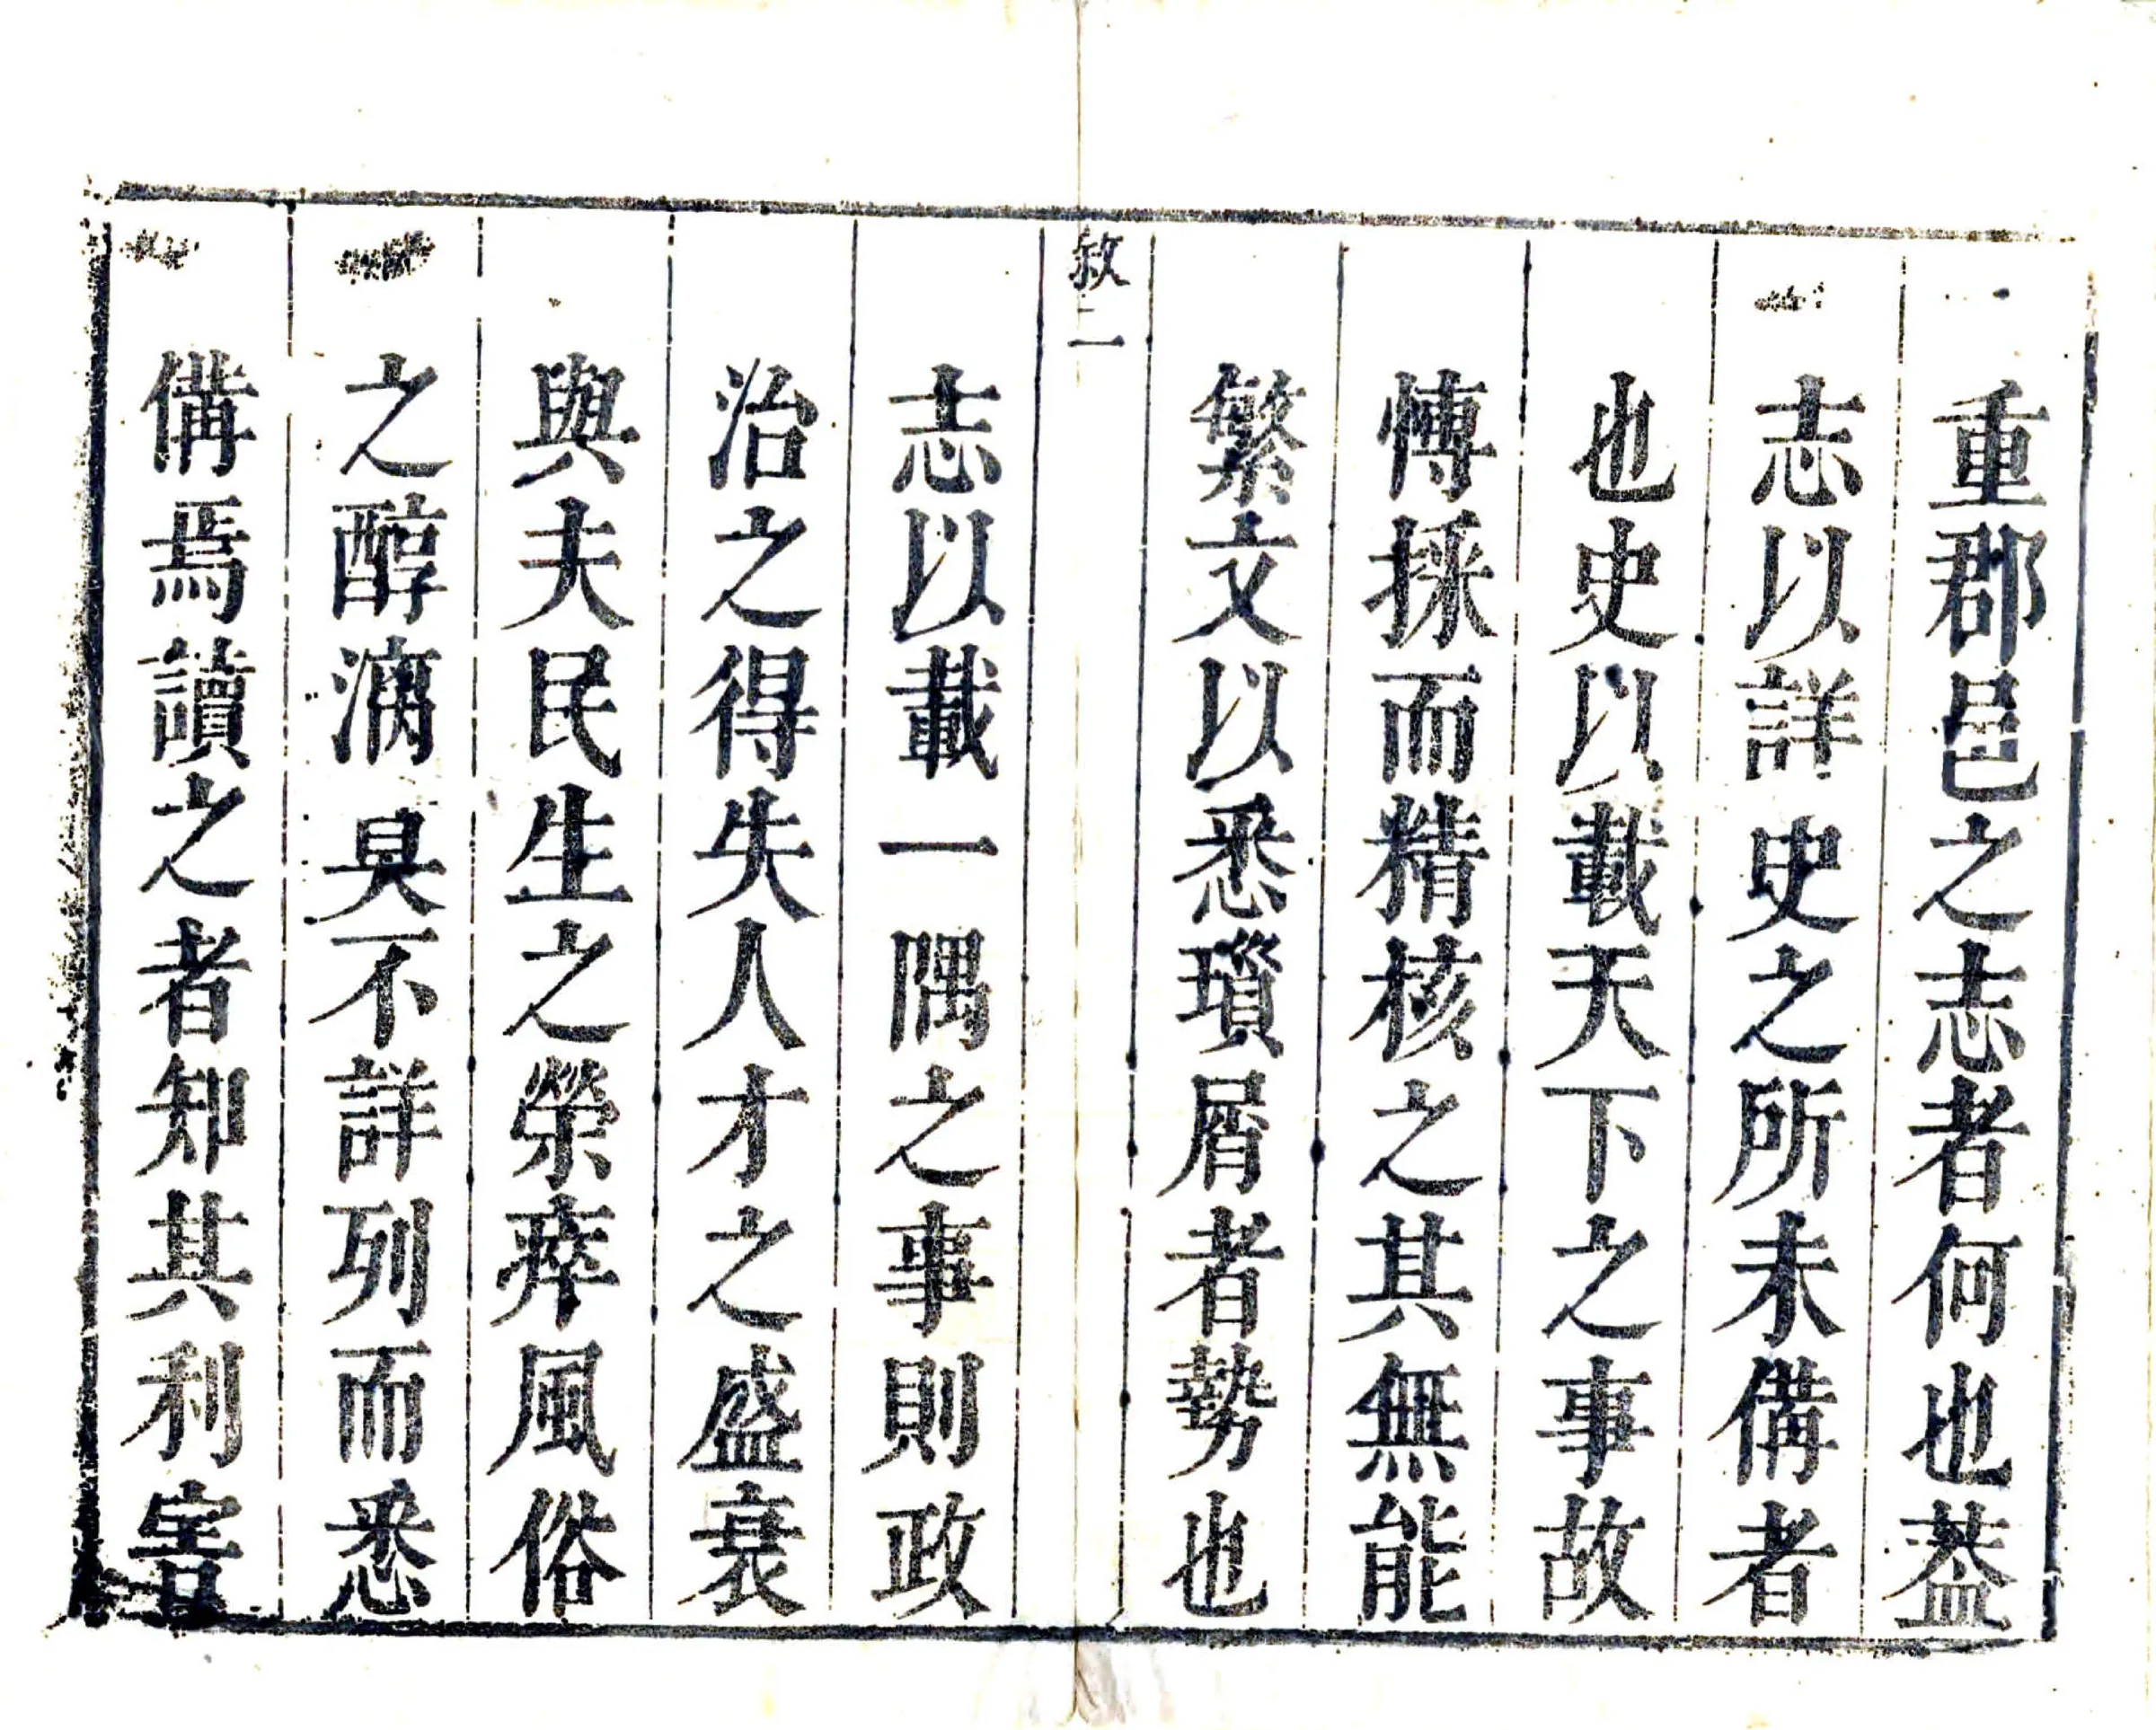 重郡邑之志者何也葢
志以詳史之所未備者
也史以載天下之事故
愽採而精核之其無能
繁文以悉瑣屑者勢也
敘二
志以載一隅之事則政
治之得失人才之盛衰
與夫民生之榮瘁風俗
之醇漓具不詳列而悉
備焉讀之者知其利害